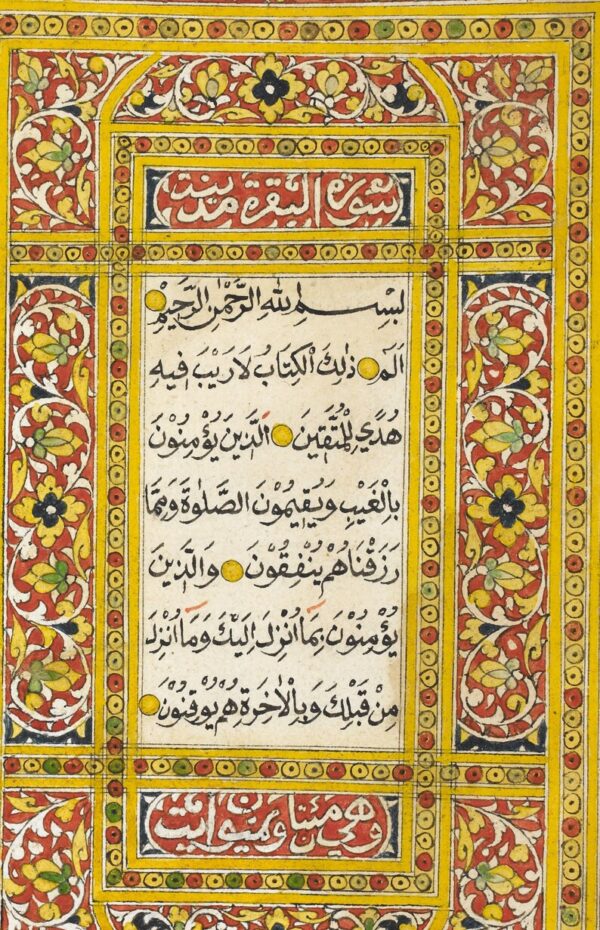 سورة البقرة مدنية
بِسْمِ اللهِ الرَّحْمٰنِ الرَّحِيْمِ
الٓمٓ ذٰلِكَ الْكِتَابُ لَا رَيْبَ فِيهِ
هُدًي لِلْمُتَّقِينَ الَّذِينَ يُؤْمِنُوْنَ
بِالْغَيْبِ وَيُقِيمُوْنَ الصَّلٰوةَ وَمِمَّا
رَزَقْنَاهُمْ يُنْفِقُوْنَ وَالَّذِينَ
يُؤْمِنُوْنَ بِمَا اُنْزِلَ اِلَيْكَ وَمَا اُنْزِلَ
مِنْ قَبْلِكَ وَبِالْاٰخِرَةِ هُمْ يُوْقِنُوْنَ
وهي مئتان